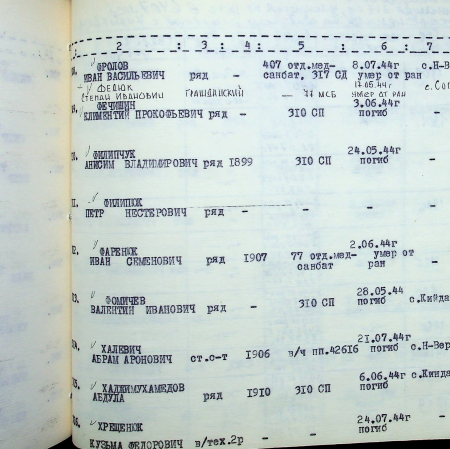 2 : 3 : 4 : 5 : 6 : 7
ФРОЛОВ 407 отд.мед- 8.07.44г с.Н-Ве
ИВАН ВАСИЛЬЕВИЧ ряд – санбат. 317 СД умер от ран
ФЕДЮК 17.05.44г
СТЕПАН ИВАНОВИЧ ГРАЖДАНСКИЙ – 77 МСБ УМЕР ОТ РАН с.
ФЕЧИШИН 3.06.44г
КЛИМЕНТИЙ ПРОКОФЬЕВИЧ ряд – 310 СП погиб –
ФИЛИПЧУК 24.05.44г
АНИСИМ ВЛАДИМИРОВИЧ ряд 1899 310 СП погиб –
ФИЛИПЮК
ПЕТР НЕСТЕРОВИЧ ряд – – – –
ФАРЕНЮК 2.06.44г
ИВАН СЕМЕНОВИЧ ряд 1907 77 отд.мед- умер от
санбат ран –
ФОМИЧЕВ 28.05.44
ВАЛЕНТИН ИВАНОВИЧ ряд – 310 СП погиб с.Кийда
ХАЛЕВИЧ 21.07.44г
АБРАМ АРОНОВИЧ ст.с-т 1906 в/ч пп.42616 погиб с.Н-Вер
ХАДЖИМУХАМЕДОВ 6.06.44г с.Кинда
АБДУЛА ряд 1910 310 СП погиб
ХРЕЩЕНЮК 24.07.44г –
погиб
КУЗЬМА ФЕДОРОВИЧ в/тех.2р – –